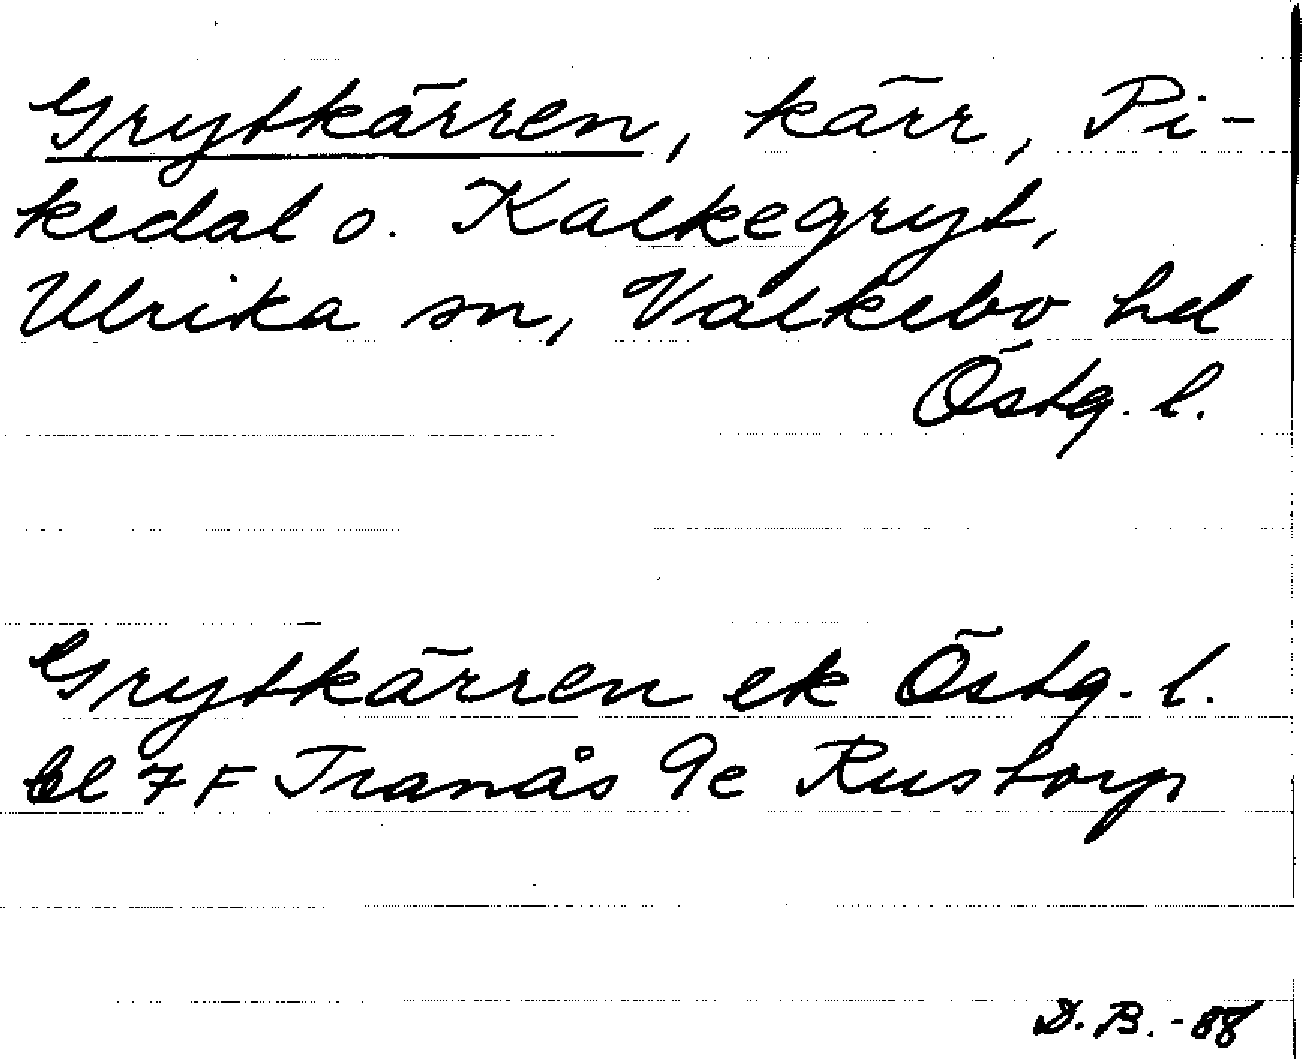 Grytkärren, kärr, Pi-
kedal o. Kalkegryt,
Ulrika sn, Valkebo hd
Östg. l.
Grytkärren ek Östg. l.
bl 7F Tranås 9e Rustorp
D.B.-88